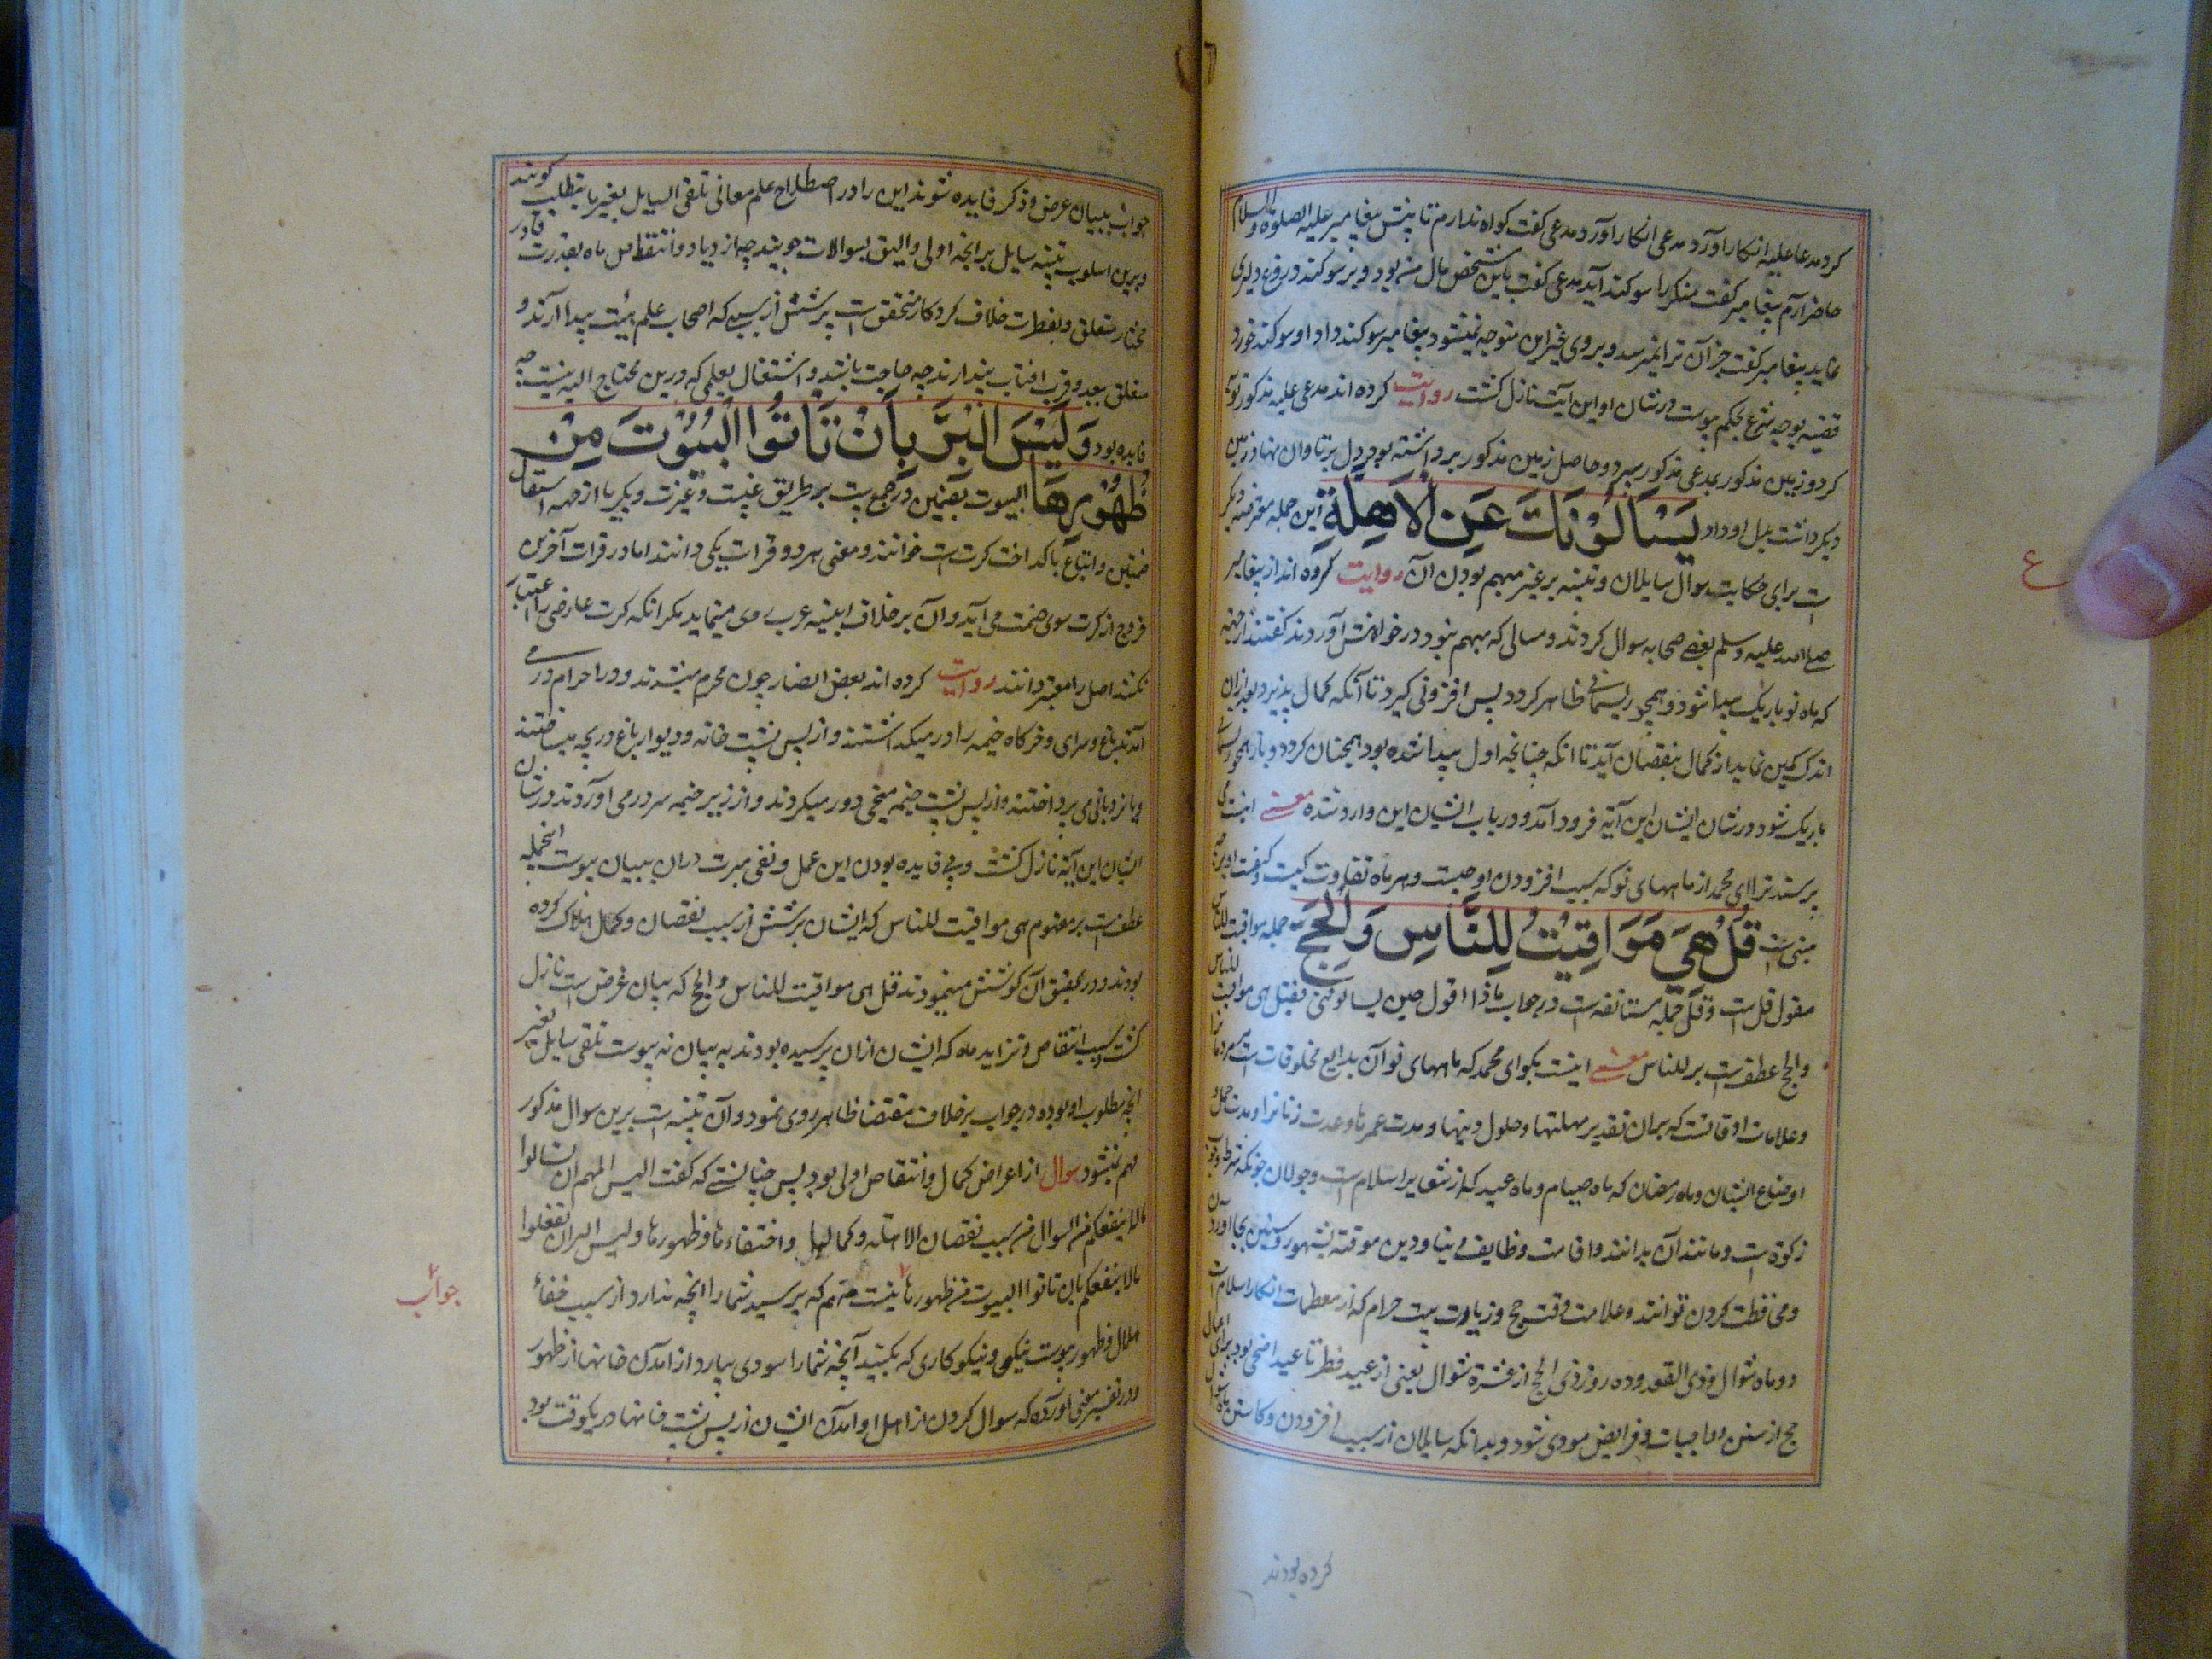 کرد مدعا علیه انکار آورد مدعی انکار آورد مدعی کفت کواه ندارم تا پیش پیغامبر علیه الصلوة والسلام
حاضر آرم پیغامبر کفت منکر را سوکند آید مدعی کفت این شخص مال من بود و بر سوکند دروغ دلیری
نماید پیغامبر کفت جز آن ترا نمیرسد و بر وی غیر این متوجه نمیشود پیغامبر سوکند داد او سوکند خورد
قضیه بوجه شرع بحکم پیوست در شان او این آیت نازل کشت روایت کرده اند مدعی علیه مذکور توبه
کرد و زمین مذکور بمدعی مذکور سپرد و حاصل زمین مذکور برداشته بود دل بر تاوان نهاد زمین
دیکر داشت بدل او داد یَسْأَلُوْنَكَ عَنِ الْاَهِلَّةِ این جمله معترضه دیکر
است برای حکایت سوال سایلان و تنبیه بر غیر مبهم بودن آن روایت کرده اند از پیغامبر
صلی الله علیه وسلم بعضی صحابه سوال کردند و مسالی که مبهم نبود در خواستش آوردند کفتند از جهت
که ماه نو باریک پیدا شود و همچو ریسمانی ظاهر کردد پس افزونی کیرد تا آنکه کمال پذیرد بعد ازان
اندک کمین نماید از کمال بنقصان آید تا انکه چنانچه اول پیدا شده بود همچنان کردد و باز همچو ریسمانی
باریک شود در شان ایشان این آیة فرود آمد و در باب ایشان این وارد شده معنی اینست می
پرسند ترا ای محمد از ماههای نو که سبب افزودن او چیست و هر ماه تفاوت کمیت و کیفیت او بر چه
مبنی است قُلْ هِيَ مَوَاقِيْتُ لِلنَّاسِ وَالْحَجِّ جمله مواقیت للناس
مقول قل است و قل جمله مستانفه است در جواب ماذا اقول حین یسالوننی فقیل هی مواقیت للناس
والحج عطف است بر للناس معنی اینست بکو ای محمد که ماههای نو آن بدایع مخلوقات است مردمانرا
و علامات اوقاتست که بران تقدیر مهلتها و حلول دینها و مدت عمرها و عدت زنانرا و مدت حمل و
اوضاع ایشان و ماه رمضان که ماه صیام و ماه عید که از شعایر اسلام است و حولان حول که شرط وجوب
زکوة است و مانند آن بدانند و اقامت وظایف دنیا و دین موقته بشهور و سنین بجا آوردن
و محافظت کردن توانند و علامت وقت حج و زیارت بیت حرام که از معظمات انکار اسلام است
دو ماه شوال و ذی القعده و ده روز ذی الحج از عشرة شوال یعنی از عید فطر تا عید اضحی بود برای اعمال
حج از سنن و واجبات و فرایض مودی شود و بدانکه سایلان از سبب افزودن و کاستن ماه سوال
کرده بودند
ع
جواب ببیان عرض و ذکر فایده شوند این را در اصطلاح علم معانی تلقی السایل بغیر ما یتطلب کویند
و برین اسلوب تنبیه سایل بر انچه اولی و الیق بسوالات جویند چه ازدیاد و انتقاص ماه بقدرت قادر
مختار متعلق و بفطرت خلاف کردکار متحقق است پرسش از سببی که اصحاب علم هیئت پیدا آرند و
معلق ببعد و قرب افتاب پندارند چه حاجت باشد و اشتغال بعلمی که در دین محتاج الیه نیست چه
فایده بود وَلَيْسَ الْبِرُّ بِاَنْ تَاْتُوا الْبُيُوْتَ مِنْ
ظُهُوْرِهَا البیوت بضمتین در جمع بیت بر طریق غیب و غیرت و بکسر با از جهت استثقال
ضمتین و اتباع با کد اخت کرت است خوانند و معنی هر دو قرات یکی دانند اما در قرات آخرین
خروج از کسرت سوی ضمت می آید و آن بر خلاف ابنیه عرب روی مینماید مکر انکه کسرت عارضی را اعتبار
نکنند اصل را معتبر دانند روایت کرده اند بعض انصار چون محرم میشدند و در احرام در می
آمدند باغ و سرای و خرکاه خیمه را در میکذاشتند و از پس پشت خانه و دیوار باغ دریچه میساختند
و یا نردبانی می پرداختند و از پس پشت خیمه میخی دور میکردند و از زیر خیمه سر در می آوردند در شان
ایشان این آیة نازل کشت و بی فایده بودن این عمل و نفی مبرت دران ببیان پیوست این جمله
عطف است بر مفهوم هی مواقیت للناس که ایشان پرسش از سبب نقصان و کمال هلال کرده
بودند و در تحقیق آن کوشش مینمودند قل هی مواقیت للناس والحج که بیان غرض است نازل
کشت و سبب انتقاص و تزاید ماه که ایشان ازان پرسیده بودند به بیان نه پیوست تلقی سایل بغیر
انچه مطلوب او بود در جواب بر خلاف مقتضا ظاهر روی نمود و آن تنبیه است برین سوال مذکور
مهم نشود سوال از اعراض کمال و انتقاص اولی بود پس چنانستی که کفت الیس المهم ان تسالوا
مالا ینفعکم من السوال من سبب نقصان الاهلة و کمالها و اختفاءها و ظهورها و لیس البر ان تفعلوا
مالا ینفعکم بان تاتوا البیوت من ظهورها نیست مهم که پرسید شما را انچه ندارد از سبب خفاء
هلال و ظهور پیوست نیکی و نیکو کاری که بکنید آنچه شما را سودی نیارد از آمدن خانها از ظهور
و در تفسیر معنی آورده که سوال کردن از اهل و آمدن ایشان از پس پشت خانها در یکوقت بود
جواب